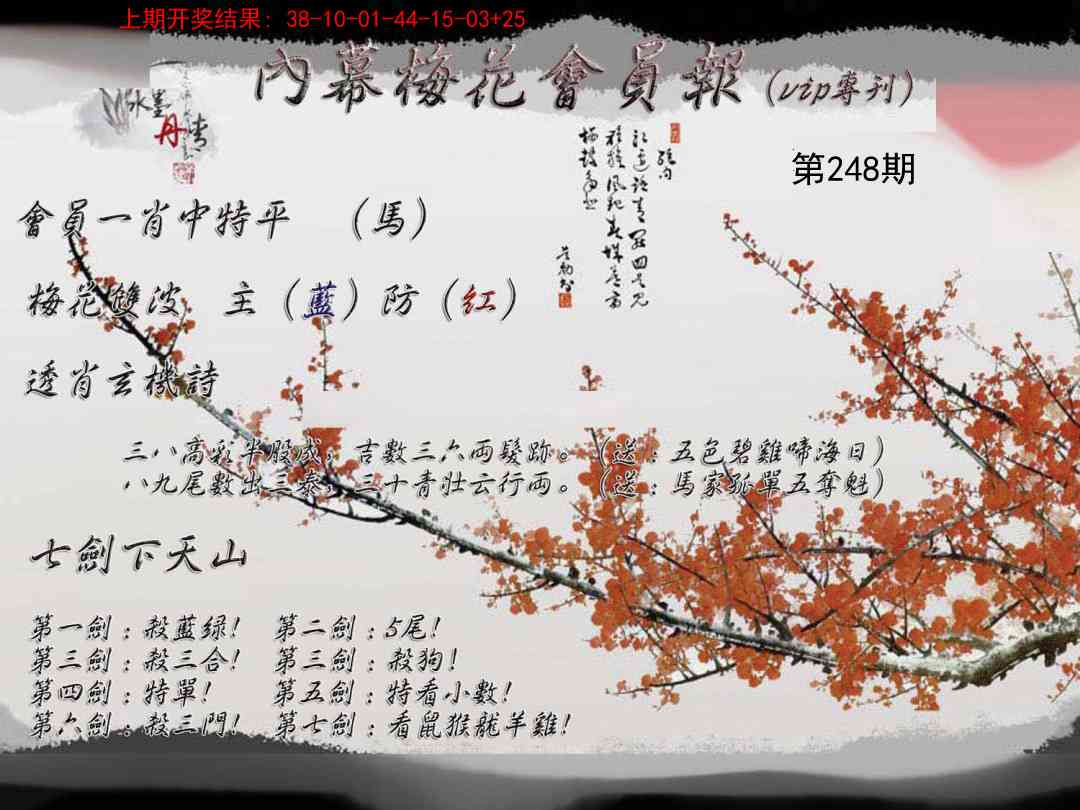 上期开奖结果：38-10-01-44-15-03+25
內幕梅花會員報（vip專刊）
水墨
丹青
第248期
會員一肖中特平 （馬）
梅花雙波 主（藍）防（紅）
透肖玄機詩
三八高彩半股成，吉數三六両髮跡。（送：五色碧雞啼海日）
八九尾數出三泰，三十青壮云行両。（送：馬家孤單五奪魁）
七劍下天山
第一劍：殺藍绿！ 第二劍：5尾！
第三劍：殺三合！ 第三劍：殺狗！
第四劍：特單！ 第五劍：特看小數！
第六劍：殺三門！ 第七劍：看鼠猴龍羊雞！